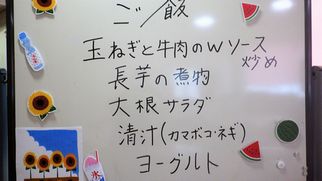 ご飯
玉ねぎと牛肉のWソース炒め
長芋の煮物
大根サラダ
清汁(カマボコ・ネギ)
ヨーグルト
氷